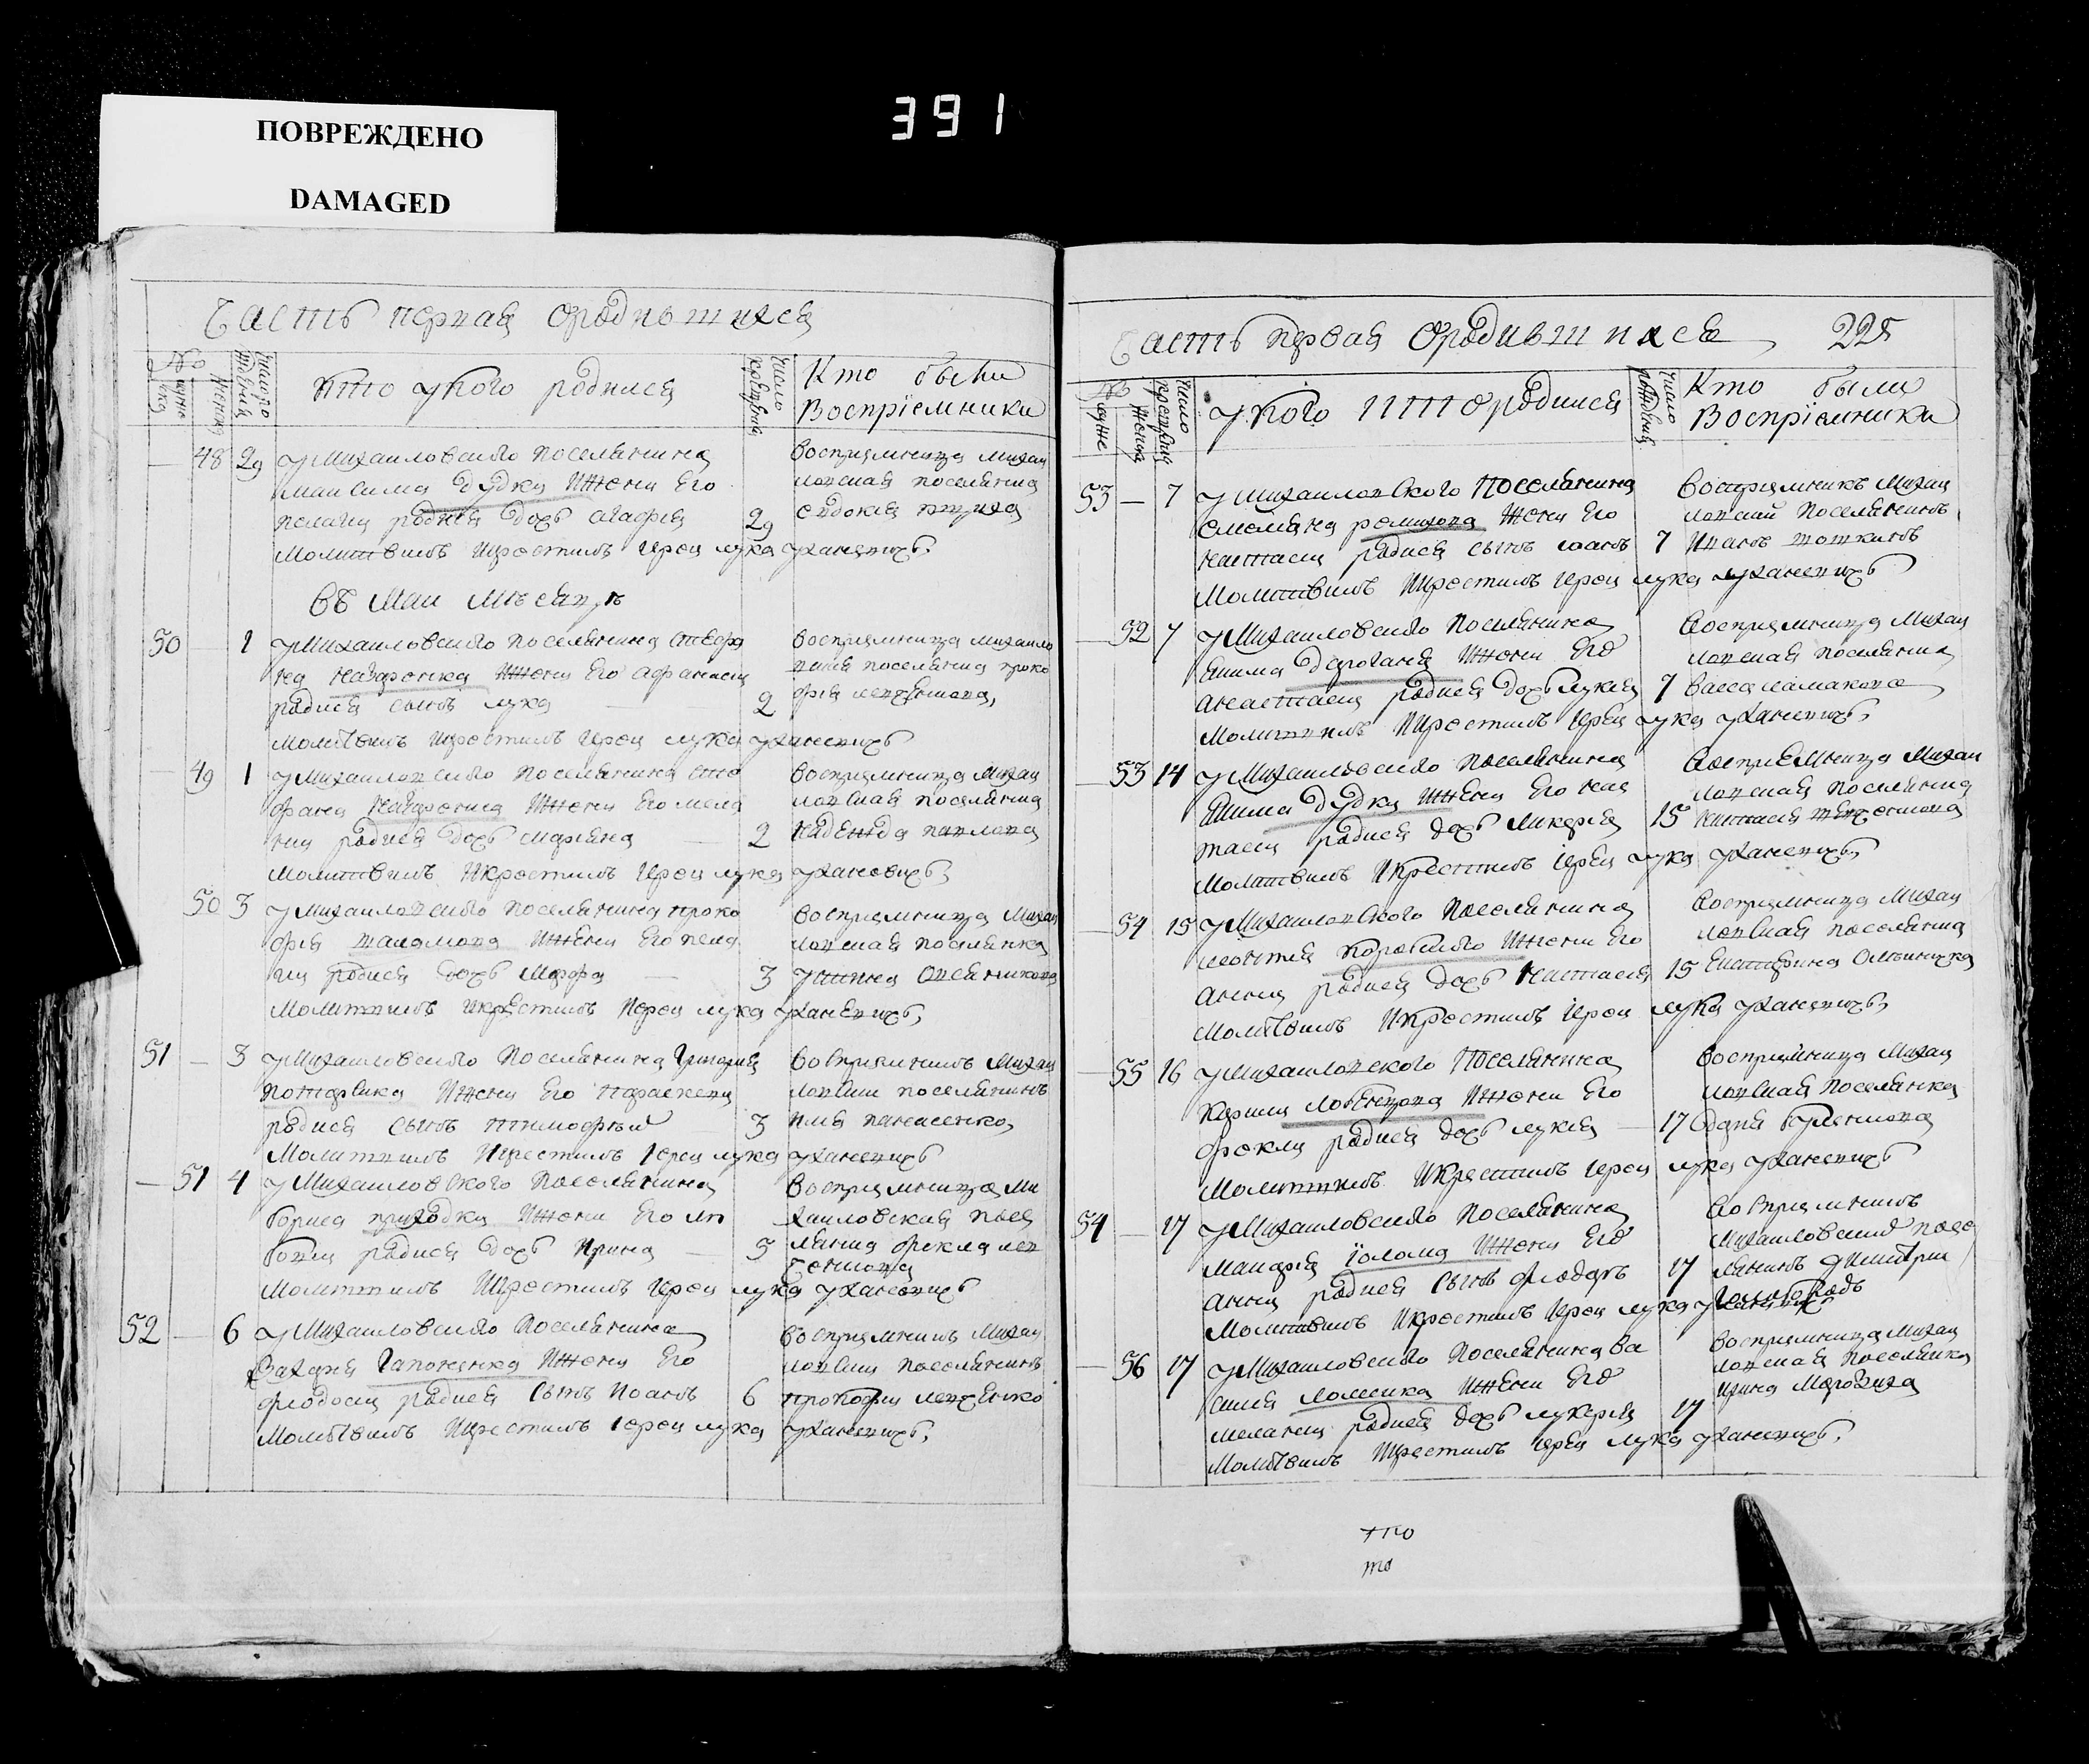 ПОВРЕЖДЕНО
DAMAGED
391
Часть первая о родившихся
№
Кто у кого родился
Число крещения
Кто были
Восприемники
48 29 у Михаиловского поселянина
максима дудки и жени его
пелагии родися дочь агафия 29
молитвилъ и крестилъ иереи лука уханевичъ
восприемница михаи
ловская поселянка
евдокия
въ маи месяце
50 1 у Михаиловского поселянина стефа
на назаренка и жени его афанасии
родися сынъ лука 2
молитвилъ и крестилъ иереи лука уханевичъ
восприемница михаило
вская поселянка проко
фия
49 1 у Михаиловского поселянина сте
фана назаренка и жени его мела
нии родися дочь мариана 2
молитвилъ и крестилъ иереи лука уханевичъ
восприемница михаи
ловская поселянка
надежда павлова
50 3 у Михаиловского поселянина проко
фия шаламова и жени его пела
гии родися дочь марфа 3
молитвилъ и крестилъ иереи лука уханевичъ
восприемница михаи
ловская поселянка
устина овсяникова
51 3 у Михаиловского поселянина григория
потапенка и жени его параскеви
родися сынъ тимофей 3
молитвилъ и крестилъ иереи лука уханевичъ
восприемникъ михаи
ловски поселянинъ
илия панасенко
51 4 у Михаиловского поселянина
бориса приходки и жени его лю
бови родися дочь ирина 5
молитвилъ и крестилъ иереи лука уханевичъ
восприемница ми
хаиловская посе
лянка фекла лев
ченкова
52 6 у Михаиловского поселянина
захария гапоненка и жени его
феодосии родися сынъ иоанъ 6
молитвилъ и крестилъ иереи лука уханевичъ
восприемникъ михаи
ловски поселянинъ
прокофи левченко
Часть первая о родившихся 225
№
у кого и кто родился
Кто были
Восприемники
53 7 у Михаиловского поселянина
емелияна ремизова жени его
настасии родися сынъ иоанъ 7
молитвилъ и крестилъ иереи лука уханевичъ
восприемникъ михаи
ловский поселянинъ
иванъ
52 7 у Михаиловского поселянина
якима дероганя и жени его
анастасии родися дочь лукия 7
молитвилъ и крестилъ иереи лука уханевичъ
восприемница михаи
ловская поселянка
васса ломакова
53 14 у Михаиловского поселянина
якима дудки и жени его нас
тасии родися дочь ликерия 15
молитвилъ и крестилъ иереи лука уханевичъ
восприемница михаи
ловская поселянка
настасия шевченкова
54 15 у Михаиловского поселянина
леонтия коробского и жени его
анни родися дочь настасия 15
молитвилъ и крестилъ иереи лука уханевичъ
восприемница михаи
ловская поселянка
екатерина
55 16 у Михаиловского поселянина
карпа лобенцова и жени его
фекли родися дочь лукия 17
молитвилъ и крестилъ иереи лука уханевичъ
восприемница михаи
ловская поселянка
одария
54 17 у Михаиловского поселянина
марка голома и жени его
анни родися сынъ феодоръ 17
молитвилъ и крестилъ иереи лука уханевичъ
восприемникъ
михаиловский посе
лянинъ димитрии
голобородь
56 17 у Михаиловского поселянина ва
силия ломенка и жени его
мелании родися дочь лукерия 17
молитвилъ и крестилъ иереи лука уханевичъ
восприемница михаи
ловская поселянка
ирина
что
то